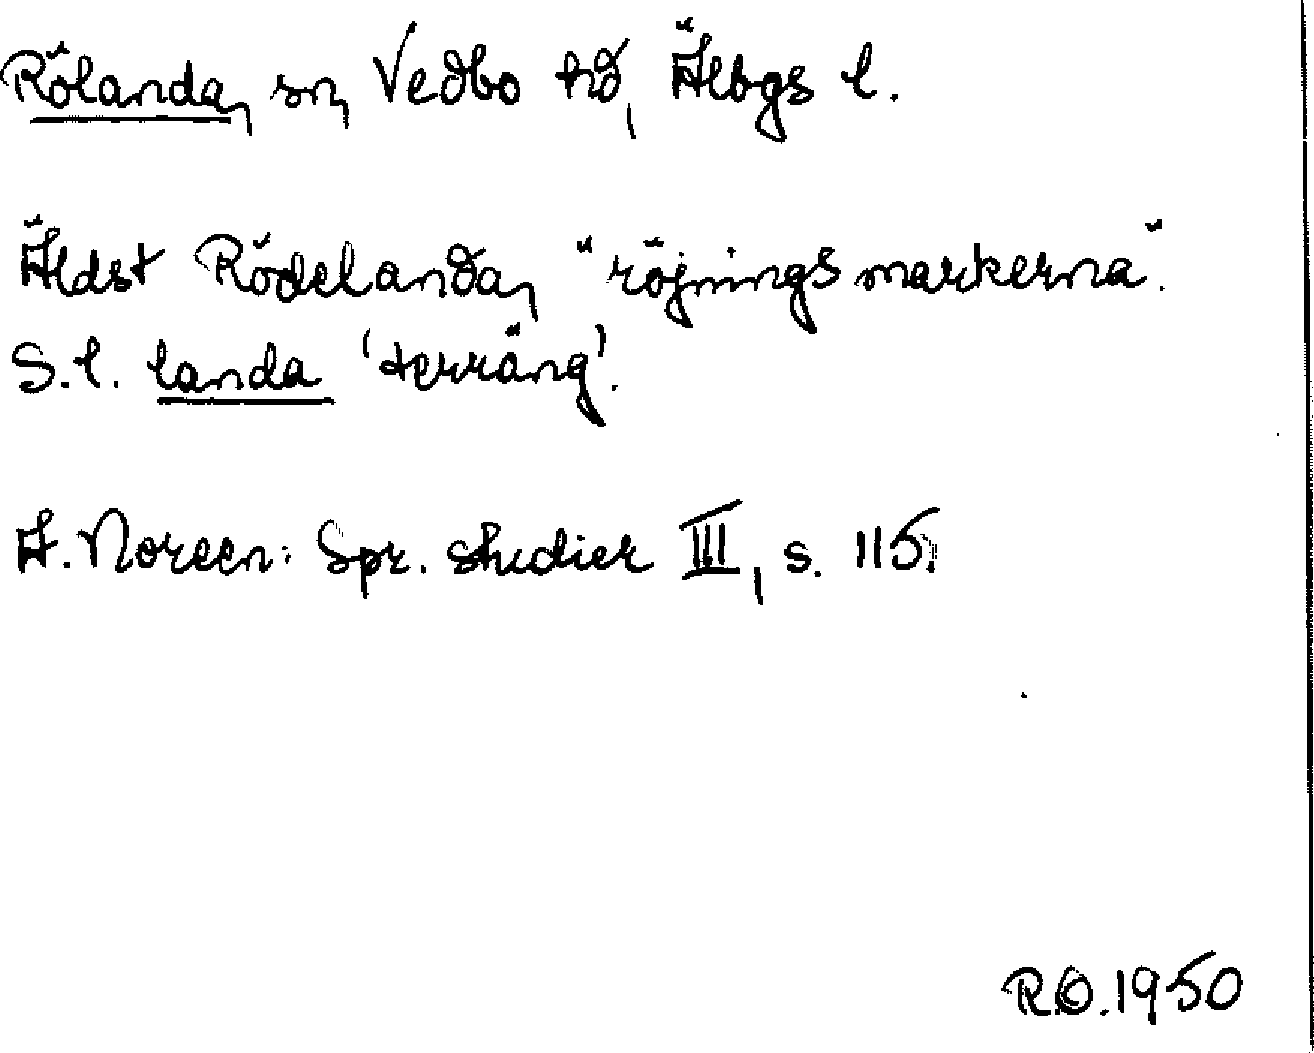 Rölanda, sn, Vedbo hd, Älbgs l.
Äldst Rödelanda, "röjningsmarkerna".
S.l. landa 'terräng'.
A. Noreen: Spr. studier III, s. 115.
R.O. 1950